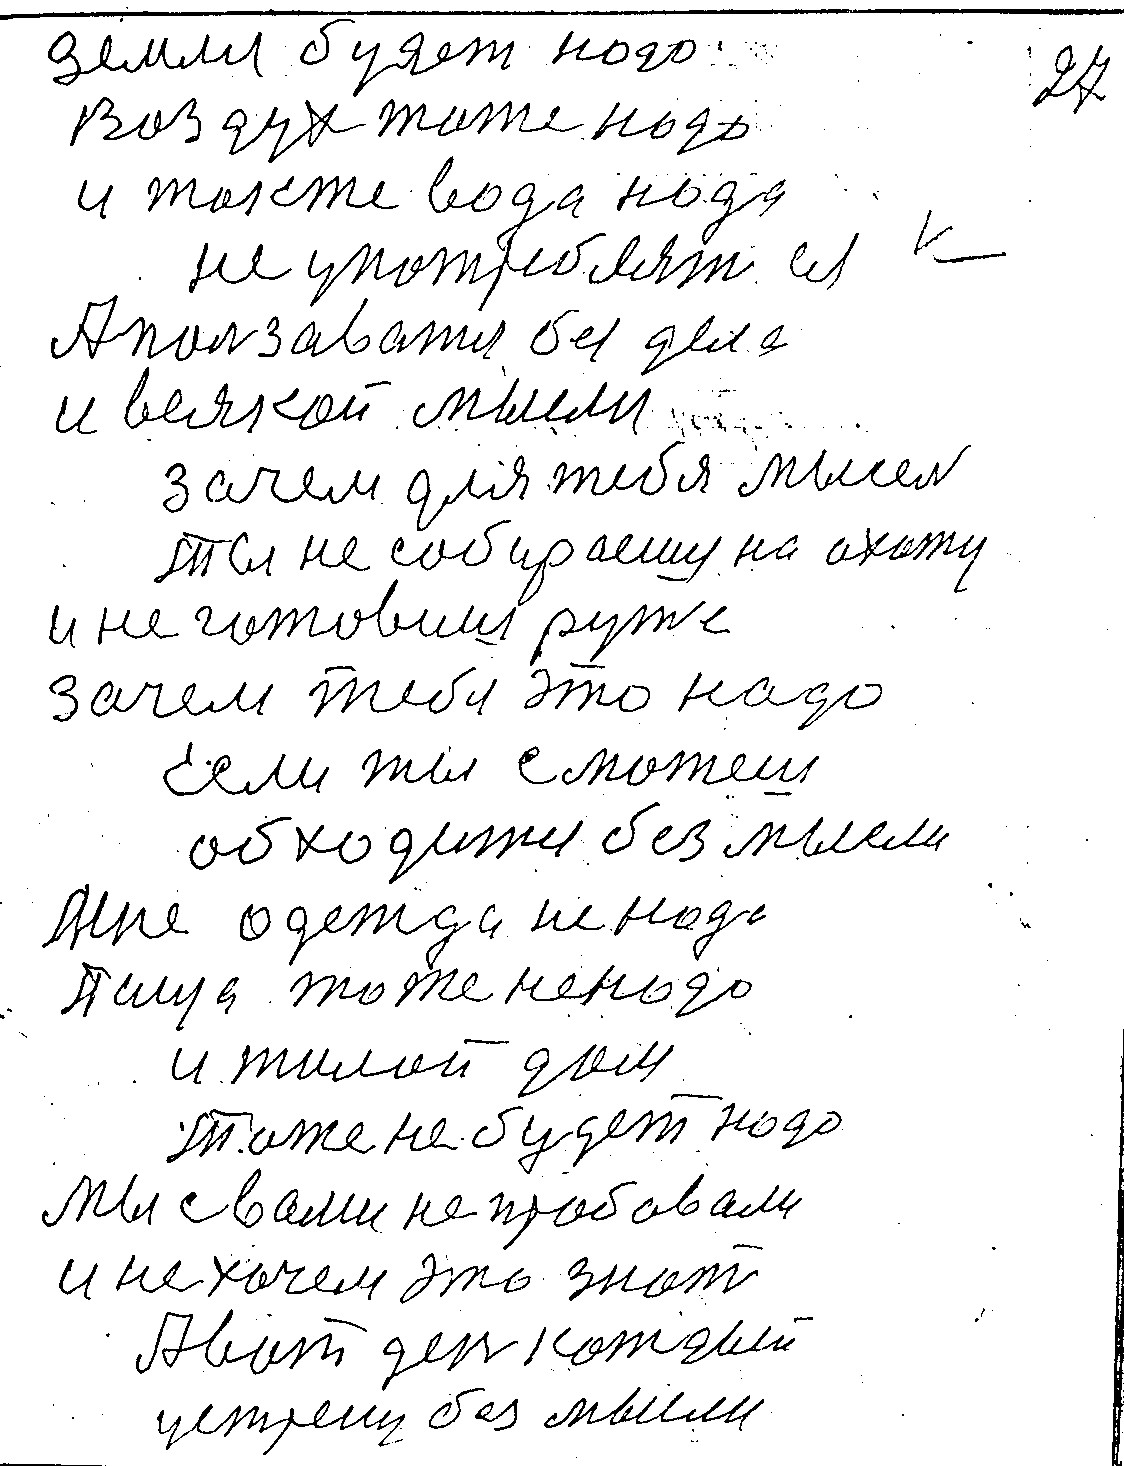 земли будет надо
27
воздух тоже надо
и также вода нада
не употреблят ся
А ползаватя без дела
и всякой мысли
зачем для тебя мысел
Ты не собираешу на охоту
и не готовиш руже
зачем тебя это надо
Если ты сможеш
обходитя без мысли
Мне одежда не надо
Пища тоже не надо
и жилой дом
Тоже не будет надо
мы с вами не пробовали
и не хочем это знат
А вот ден каждый
устрену без мысли